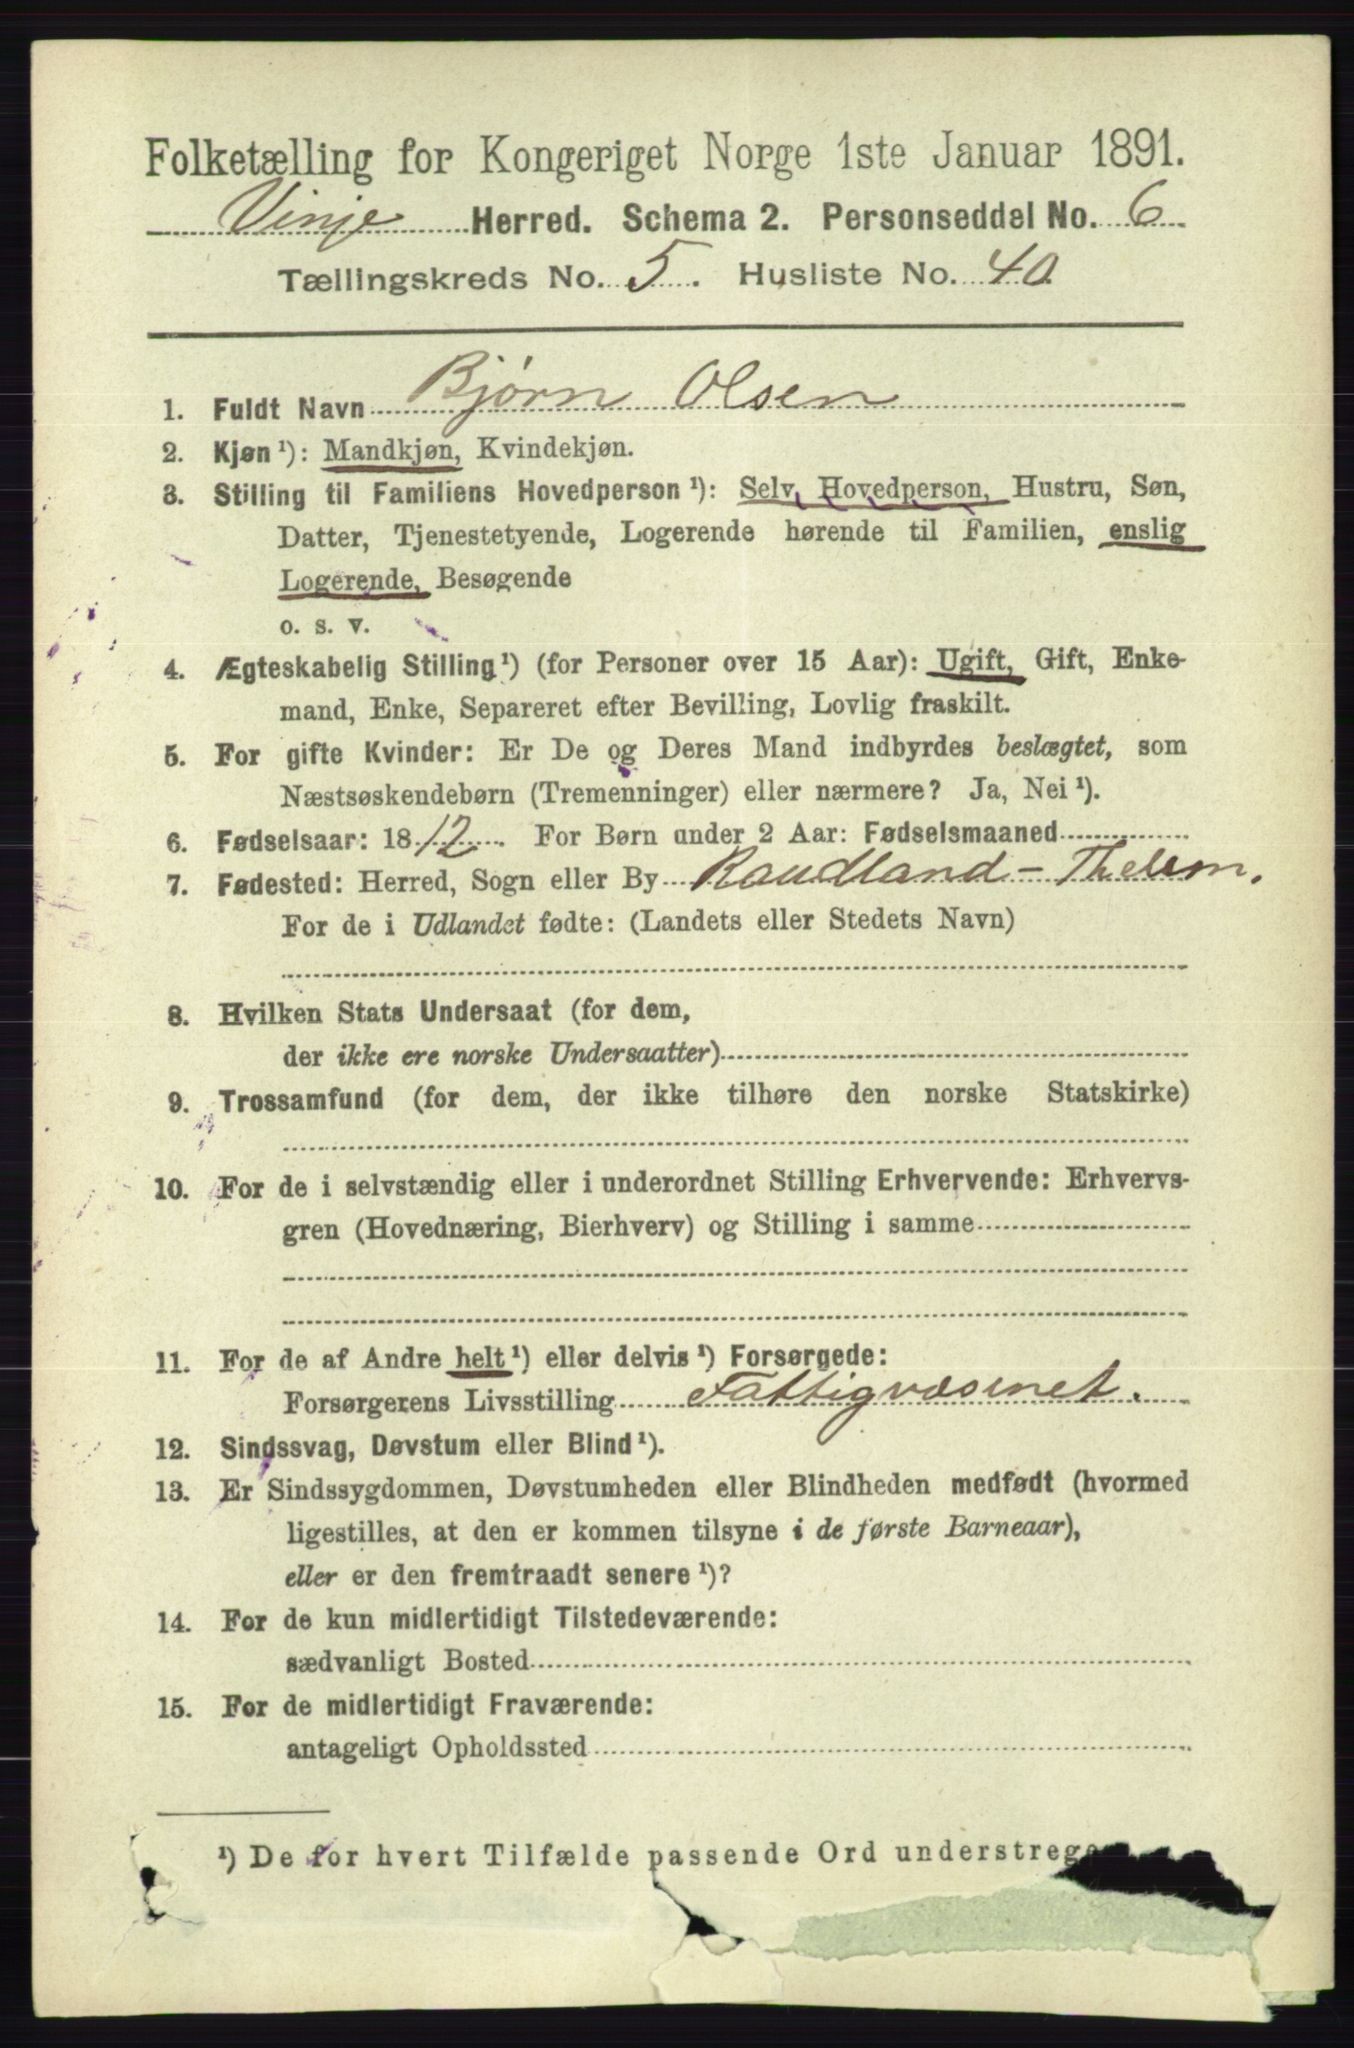 Folketælling for Kongeriget Norge 1ste Januar 1891.
Vinje Herred. Schema 2. Personseddel No. 6
Tællingskreds No. 5. Husliste No. 40
1. Fuldt Navn Bjørn Olsen
2. Kjøn ¹): Mandkjøn, Kvindekjøn.
3. Stilling til Familiens Hovedperson ¹): Selv Hovedperson, Hustru, Søn,
Datter, Tjenestetyende, Logerende hørende til Familien, enslig
Logerende, Besøgende
o. s. v.
4. Ægteskabelig Stilling ¹) (for Personer over 15 Aar): Ugift, Gift, Enke-
mand, Enke, Separeret efter Bevilling, Lovlig fraskilt.
5. For gifte Kvinder: Er De og Deres Mand indbyrdes beslægtet, som
Næstsøskendebørn (Tremenninger) eller nærmere? Ja, Nei ¹).
6. Fødselsaar: 1812. For Børn under 2 Aar: Fødselsmaaned
7. Fødested: Herred, Sogn eller By Raudland - Thelem.
For de i Udlandet fødte: (Landets eller Stedets Navn)
8. Hvilken Stats Undersaat (for dem,
der ikke ere norske Undersaatter)
9. Trossamfund (for dem, der ikke tilhøre den norske Statskirke)
10. For de i selvstændig eller i underordnet Stilling Erhvervende: Erhvervs-
gren (Hovednæring, Bierhverv) og Stilling i samme
11. For de af Andre helt ¹) eller delvis ¹) Forsørgede:
Forsørgerens Livsstilling Fattigvæsenet.
12. Sindssvag, Døvstum eller Blind ¹).
13. Er Sindssygdommen, Døvstumheden eller Blindheden medfødt (hvormed
ligestilles, at den er kommen tilsyne i de første Barneaar),
eller er den fremtraadt senere ¹)?
14. For de kun midlertidigt Tilstedeværende:
sædvanligt Bosted
15. For de midlertidigt Fraværende:
antageligt Opholdssted
¹) De for hvert Tilfælde passende Ord understrege